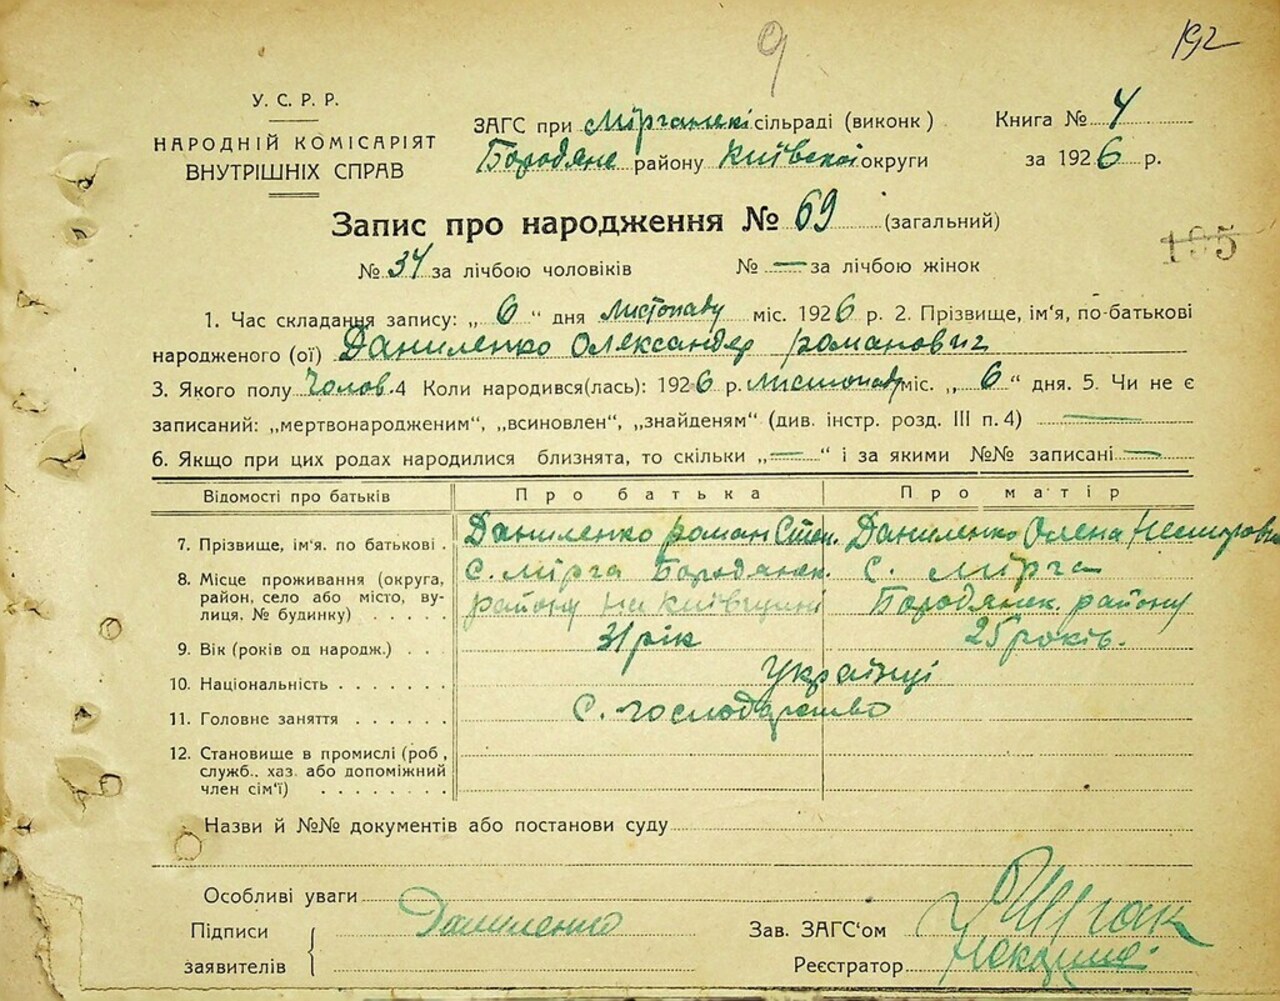 9
192
У. С. Р. Р.
НАРОДНІЙ КОМІСАРІЯТ
ВНУТРІШНІХ СПРАВ
ЗАГС при Мірчанскі сільраді (виконк)
Бородянс району Київської округи
Книга № 4
за 1926 р.
Запис про народження № 69 (загальний)
№ 34 за лічбою чоловіків № — за лічбою жінок
195
1. Час складання запису: „ 6 “ дня листопаду міс. 1926 р. 2. Прізвище, ім'я, по-батькові
народженого (ої) Даниленко Олександер Романович
3. Якого полу Чолов. 4 Коли народився(лась): 1926 р. листопаду міс. „ 6 “ дня. 5. Чи не є
записаний: „мертвонародженим“, „всиновлен“, „знайденям“ (див. інстр. розд. III п. 4) —
6. Якщо при цих родах народилися близнята, то скільки „ — “ і за якими №№ записані —
Відомості про батьків Про батька Про матір
7. Прізвище, ім'я. по батькові . Даниленко Роман Степ. Даниленко Олена Несторовн
8. Місце проживання (округа, район, село або місто, вулиця, № будинку) . . . . . С. Мірча Бородянск. С. Мірча
району на Київщині Бородянск. району
9. Вік (років од народж.) . . . 31 рік 25 років.
10. Національність . . . . . . . Українці
11. Головне заняття . . . . . . С. господарство
12. Становище в промислі (роб ,
служб.. хаз. або допоміжний
член сім'ї) . . . . . . . .
Назви й №№ документів або постанови суду
Особливі уваги
Підписи
заявителів
Даниленко
Зав. ЗАГС'ом
Реєстратор